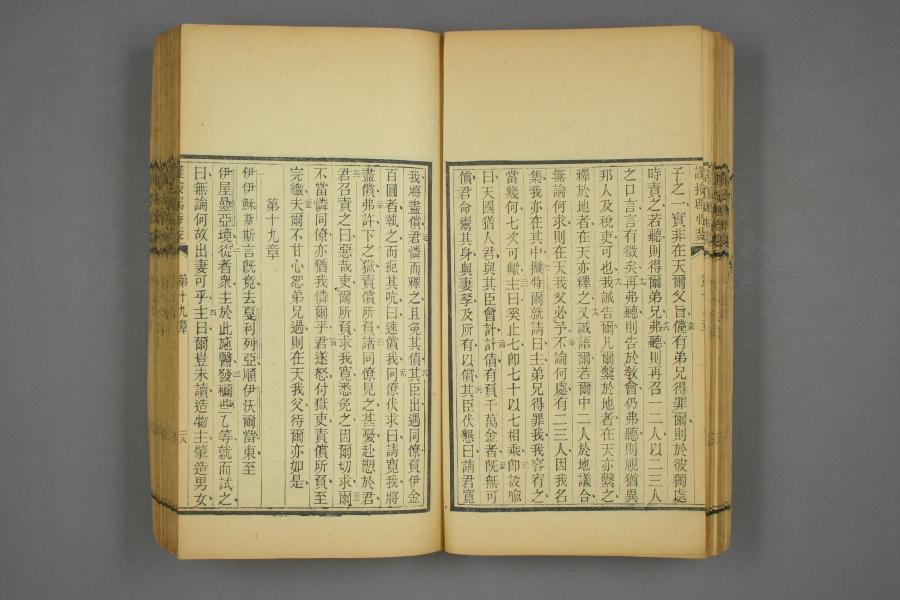 子之一實非在天爾父旨儻有弟兄得罪爾則於彼獨處
時責之若聽則得爾弟兄弗聽則再召一二人以二三人
之口言言有徵矣再弗聽則告於敎會仍弗聽則視猶異
邦人及稅吏可也我誠告爾凡爾繫於地者在天亦繫之
釋於地者在天亦釋之又誠語爾若爾中二人於地議合
無論何求則在天我父必予不論何處有二三人因我名
集我亦在其中擬特爾就請曰主弟兄得罪我我容宥之
當幾何七次可歟主曰癸止七卽七十以七相乘卽設喩
曰天國猶人君與其臣會計計債有負千萬金者旣無可
償君命鬻其身與妻孥及所有以償其臣伏懇曰請君寬
我將盡償君憐而釋之且免其債其臣出遇同僚負伊金
百圓者執之而扼其吭曰速償我同僚伏求曰請寬我將
盡償弗許下之獄責償所負諸同僚見之甚憂赴愬於君
君召責之曰惡哉吏爾所負求我寬悉免之因爾切求爾
不當憐同僚亦猶我憐爾乎君遂怒付獄吏責償所負至
完繳夫爾不甘心恕弟兄過則在天我父待爾亦如是
第十九章
伊伊穌斯斯言旣竟去戛利列亞順伊沃爾當東至
伊屋疊亞境從者衆主於此施醫發襧些乙等就而試之
曰無論何故出妻可乎主曰爾豈未讀造物主肇造男女
第十九章